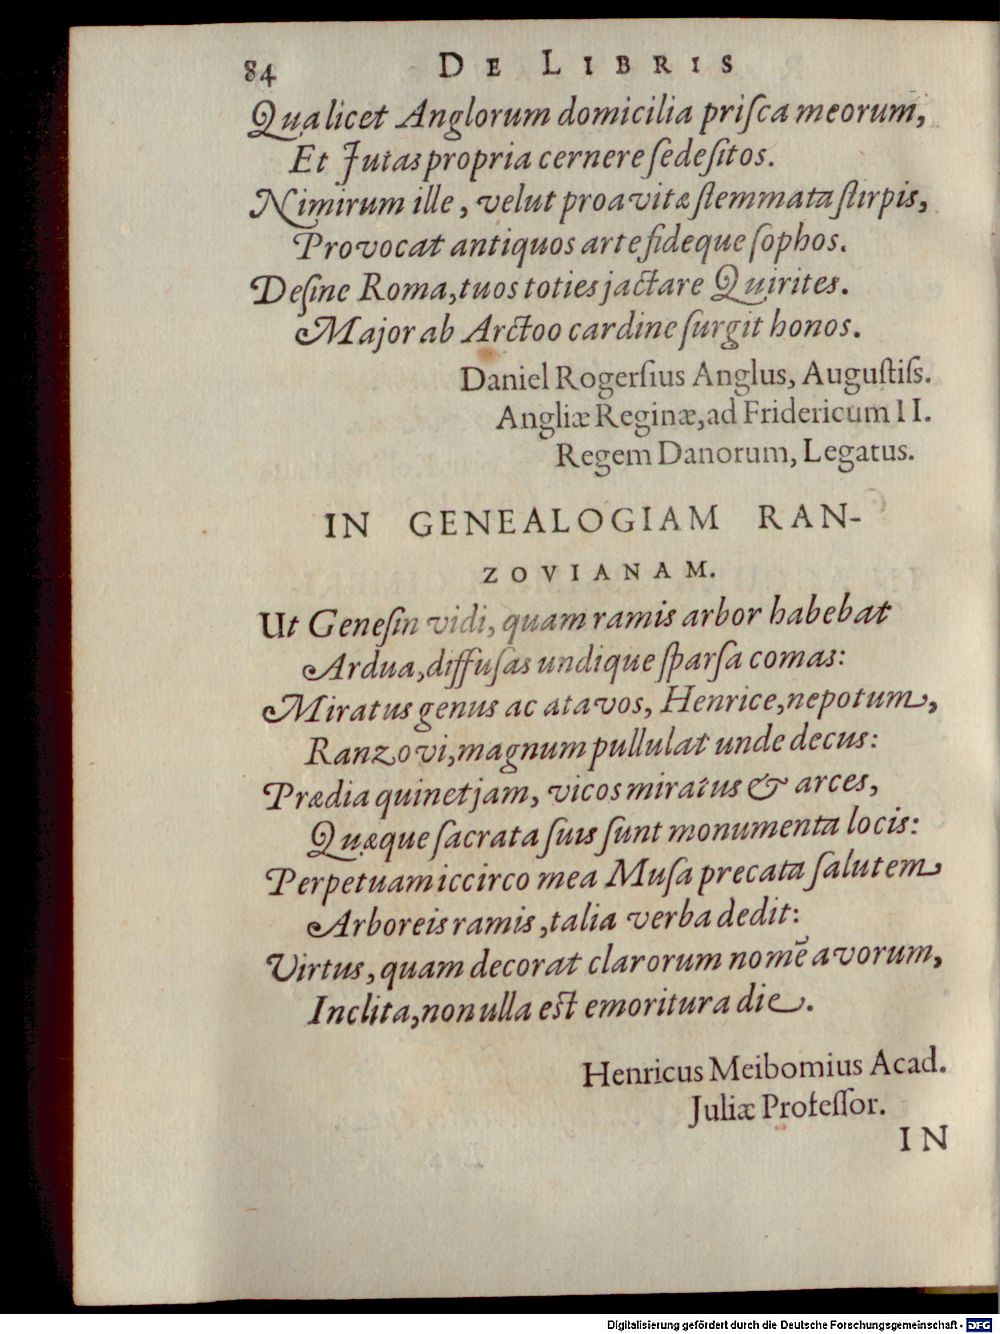 84 DE LIBRIS
Qua licet Anglorum domicilia priſca meorum,
Et Jutas propria cernere ſede ſitos.
Nimirum ille, velut proavitæ ſtemmata ſtirpis,
Provocat antiquos arte fideque ſophos.
Deſine Roma, tuos toties jactare Quirites.
Major ab Arctoo cardine ſurgit honos.
Daniel Rogerſius Anglus, Auguſtiſs.
Angliæ Reginæ, ad Fridericum II.
Regem Danorum, Legatus.
IN GENEALOGIAM RAN-
ZOVIANAM.
Ut Geneſin vidi, quam ramis arbor habebat
Ardua, diffuſas undique ſparſa comas:
Miratus genus ac atavos, Henrice, nepotum,
Ranzovi, magnum pullulat unde decus:
Prædia quinetjam, vicos miratus & arces,
Quæque ſacrata ſuis ſunt monumenta locis:
Perpetuam iccirco mea Muſa precata ſalutem
Arboreis ramis, talia verba dedit:
Virtus, quam decorat clarorum nomē avorum,
Inclita, non ulla est emoritura die.
Henricus Meibomius Acad.
Juliæ Profeſſor.
IN
Digitalisierung gefördert durch die Deutsche Forschungsgemeinschaft - DFG